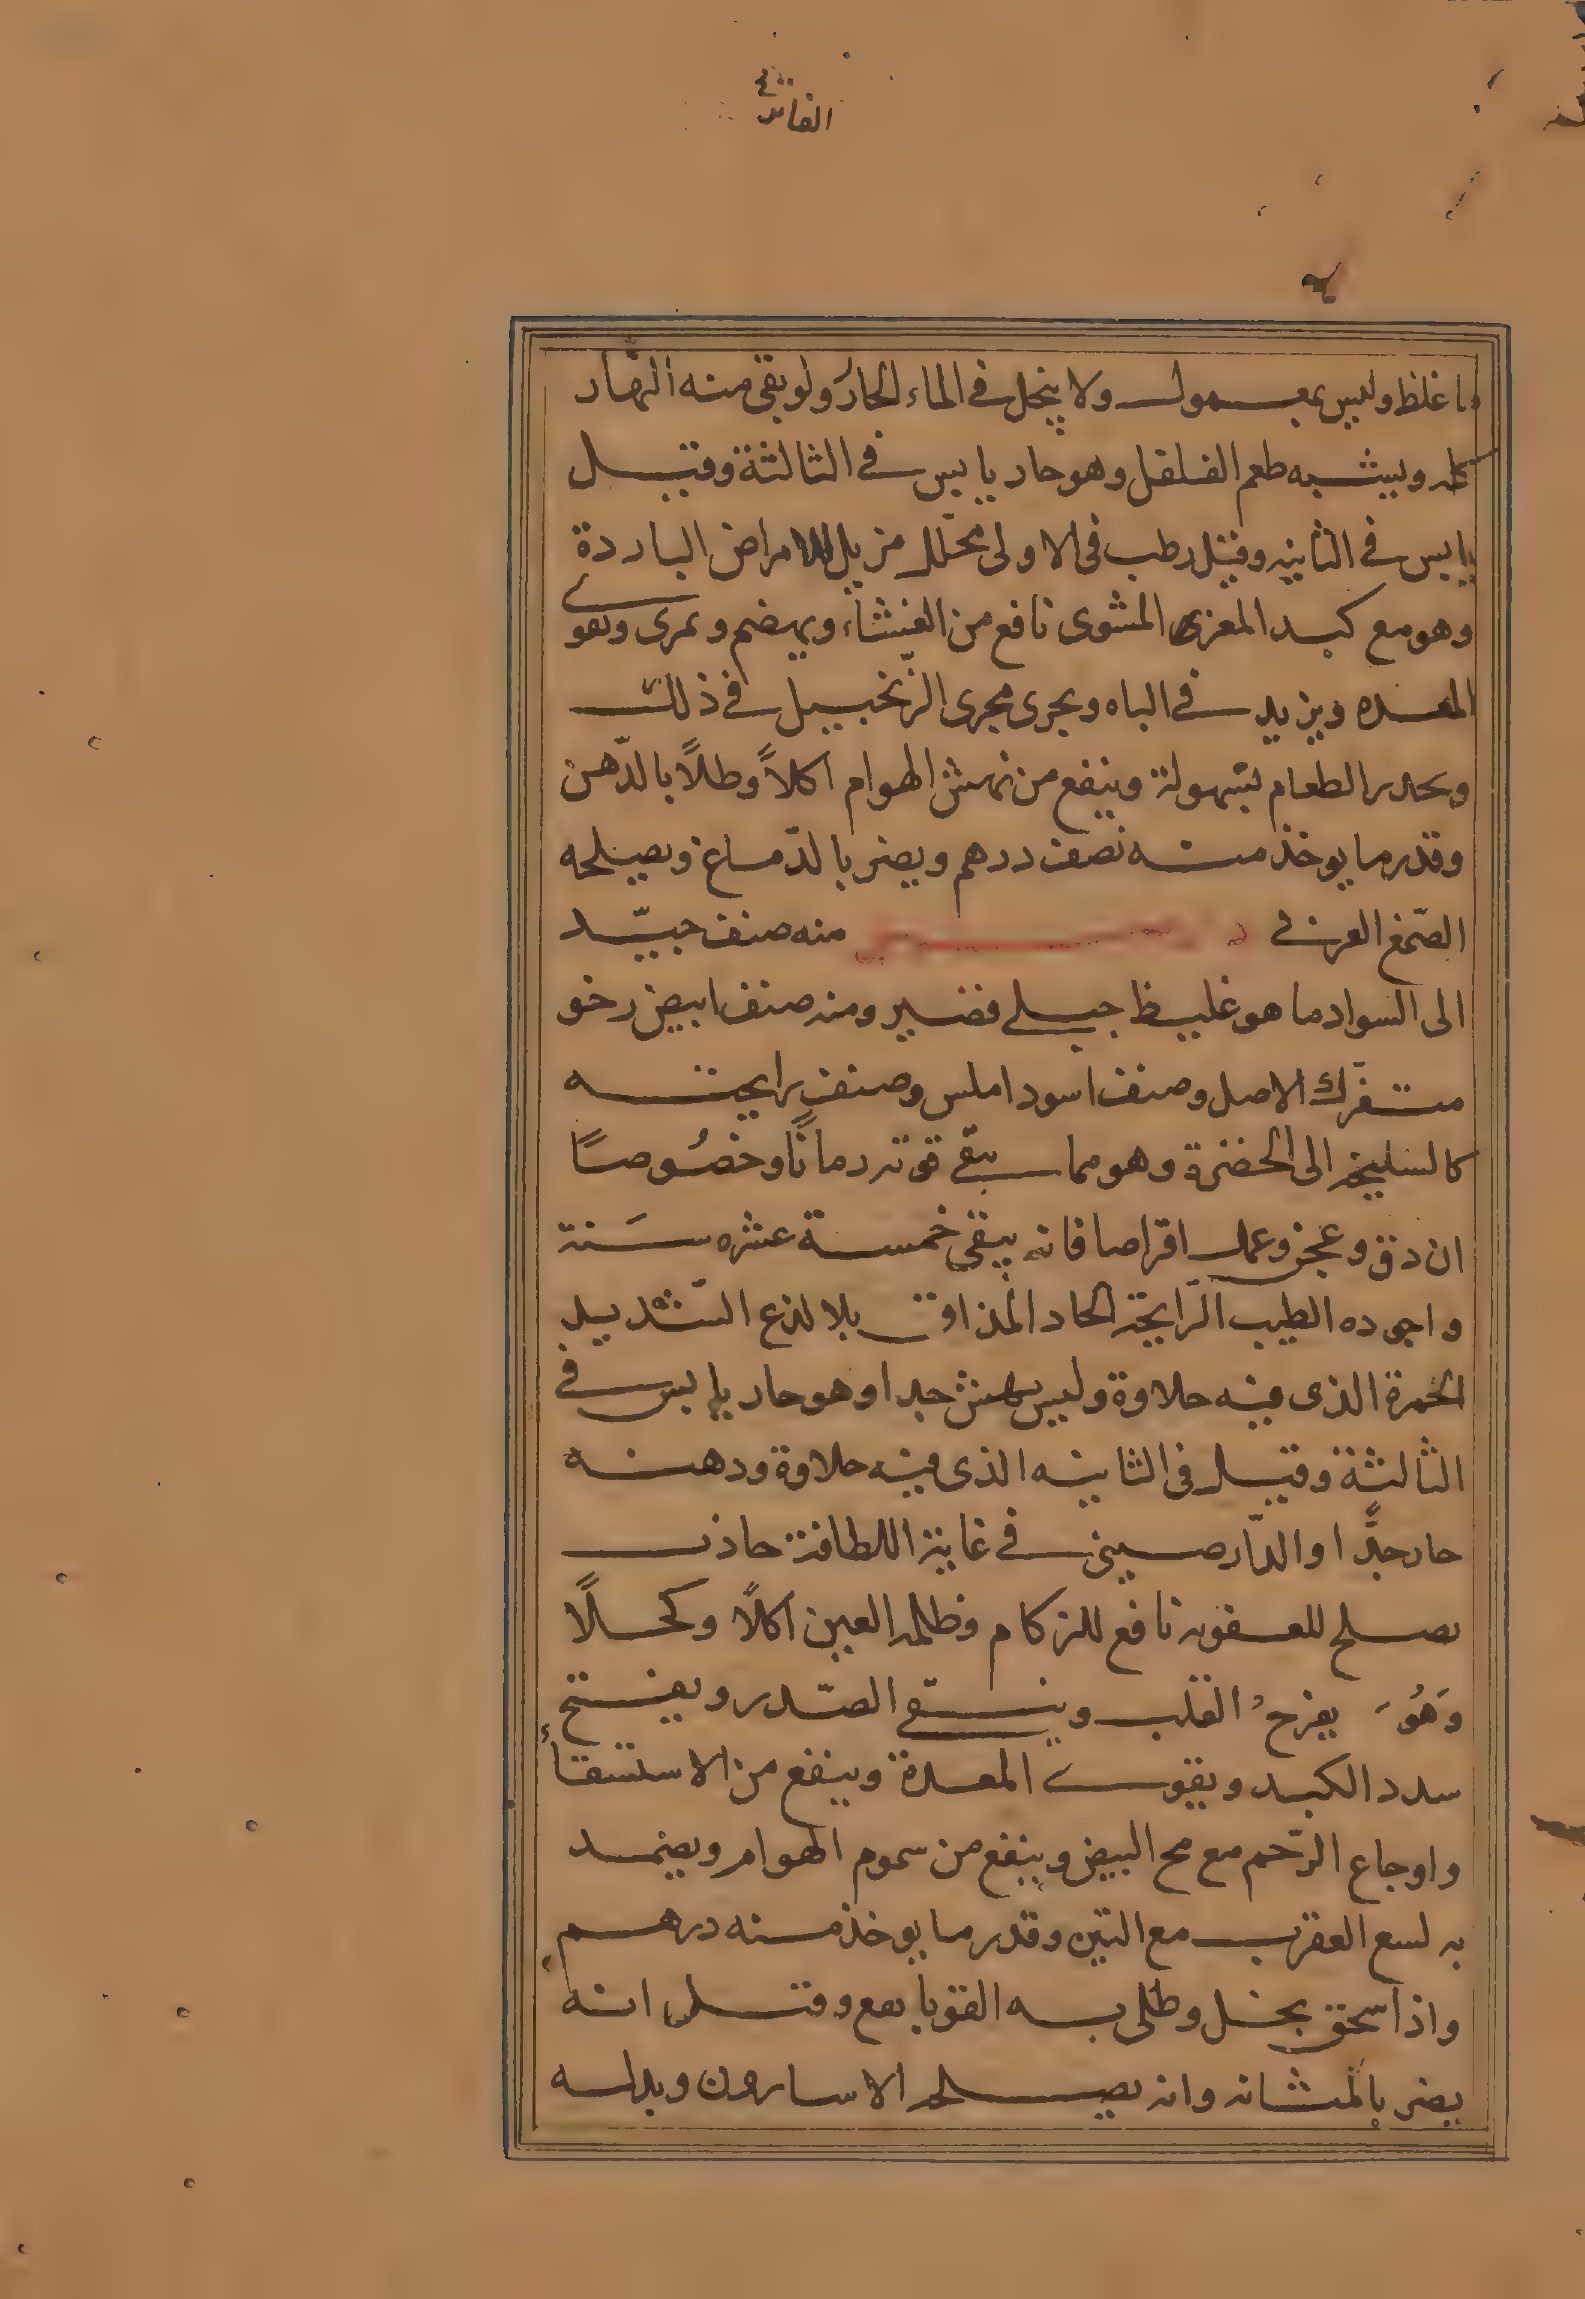 ما غلظ وليس بمعمول ولا ينحل في الماء الحار ولو بقى منه النهار
كله ويشبه طعم الفلفل وهو حار يابس في الثالثة وقيل
يابس في الثانيه وقيل رطب في الاولى محلل مزيل للامراض الباردة
وهو مع كبد المعزى المشوى نافع من الغشاء ويهضم ويمرى ويقوى
المعده ويزيد في الباه ويجرى مجرى الزنجبيل في ذلك
ويحدر الطعام بسهولة وينفع من نهش الهوام اكلاً وطلاً بالدّهن
وقدر ما يوخذ منه نصف درهم ويضر بالدّماغ ويصلحه
الصّمغ العربي منه صنف جيّد
الى السواد ما هو غليظ جبلي قصير ومنه صنف ابيض رخو
متفرك الاصل وصنف اسود املس وصنف رايحته
كالسليخه الى الخضرة وهو مما يبقى قوته زماناً وخصُوصاً
ان دق وعجن وعمل اقراصا فانه يبقى خمسة عشره سَنة
واجوده الطيب الرّايحة الحاد المذاق بلا لذع الشديد
الحمرة الذى فيه حلاوة وليس بهش جدا وهو حار يابس في
الثالثة وقيل في الثانيه الذى فيه حلاوة ودهنه
حار جدًّا والدّارصيني في غاية اللطافة جاذب
يصلح للعفونه نافع للزكام وظلمه العين اكلاً وكحلاً
وَهُوَ يفرحُ القلب وينقّي الصّدر ويفتح
سدد الكبد ويقوى المعدة وينفع من الاستسقاء
واوجاع الرّحم مع مح البيض وينفع من سموم الهوام ويضمد
به لسع العقرب مع التين وقدر ما يوخذ منه درهم
واذا سحق بخل وطلى به القوبا نفع وقيل انه
يضر بالمثانه وانه يصلحه الاسارون وبدله